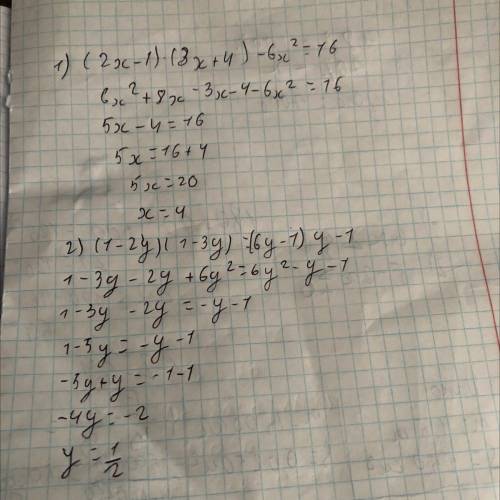 1) (2x-1)·(3x+4)-6x²=16
6x²+8x-3x-4-6x²=16
5x-4=16
5x=16+4
5x=20
x=4
2) (1-2y)(1-3y)=(6y-1)y-1
1-3y-2y+6y²=6y²-y-1
1-3y-2y=-y-1
1-5y=-y-1
-5y+y=-1-1
-4y=-2
y=1/2